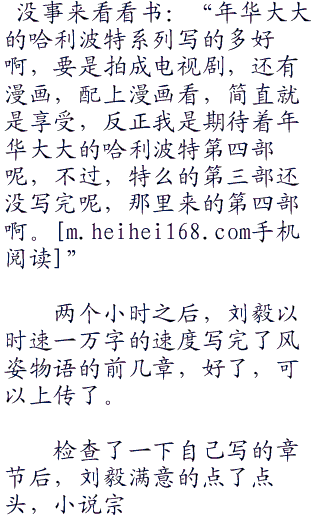 没事来看看书：“年华大大
的哈利波特系列写的多好
啊，要是拍成电视剧，还有
漫画，配上漫画看，简直就
是享受，反正我是期待着年
华大大的哈利波特第四部
呢，不过，特么的第三部还
没写完呢，那里来的第四部
啊。[m.heihei168.com手机
阅读]”
两个小时之后，刘毅以
时速一万字的速度写完了风
姿物语的前几章，好了，可
以上传了。
检查了一下自己写的章
节后，刘毅满意的点了点
头，小说宗